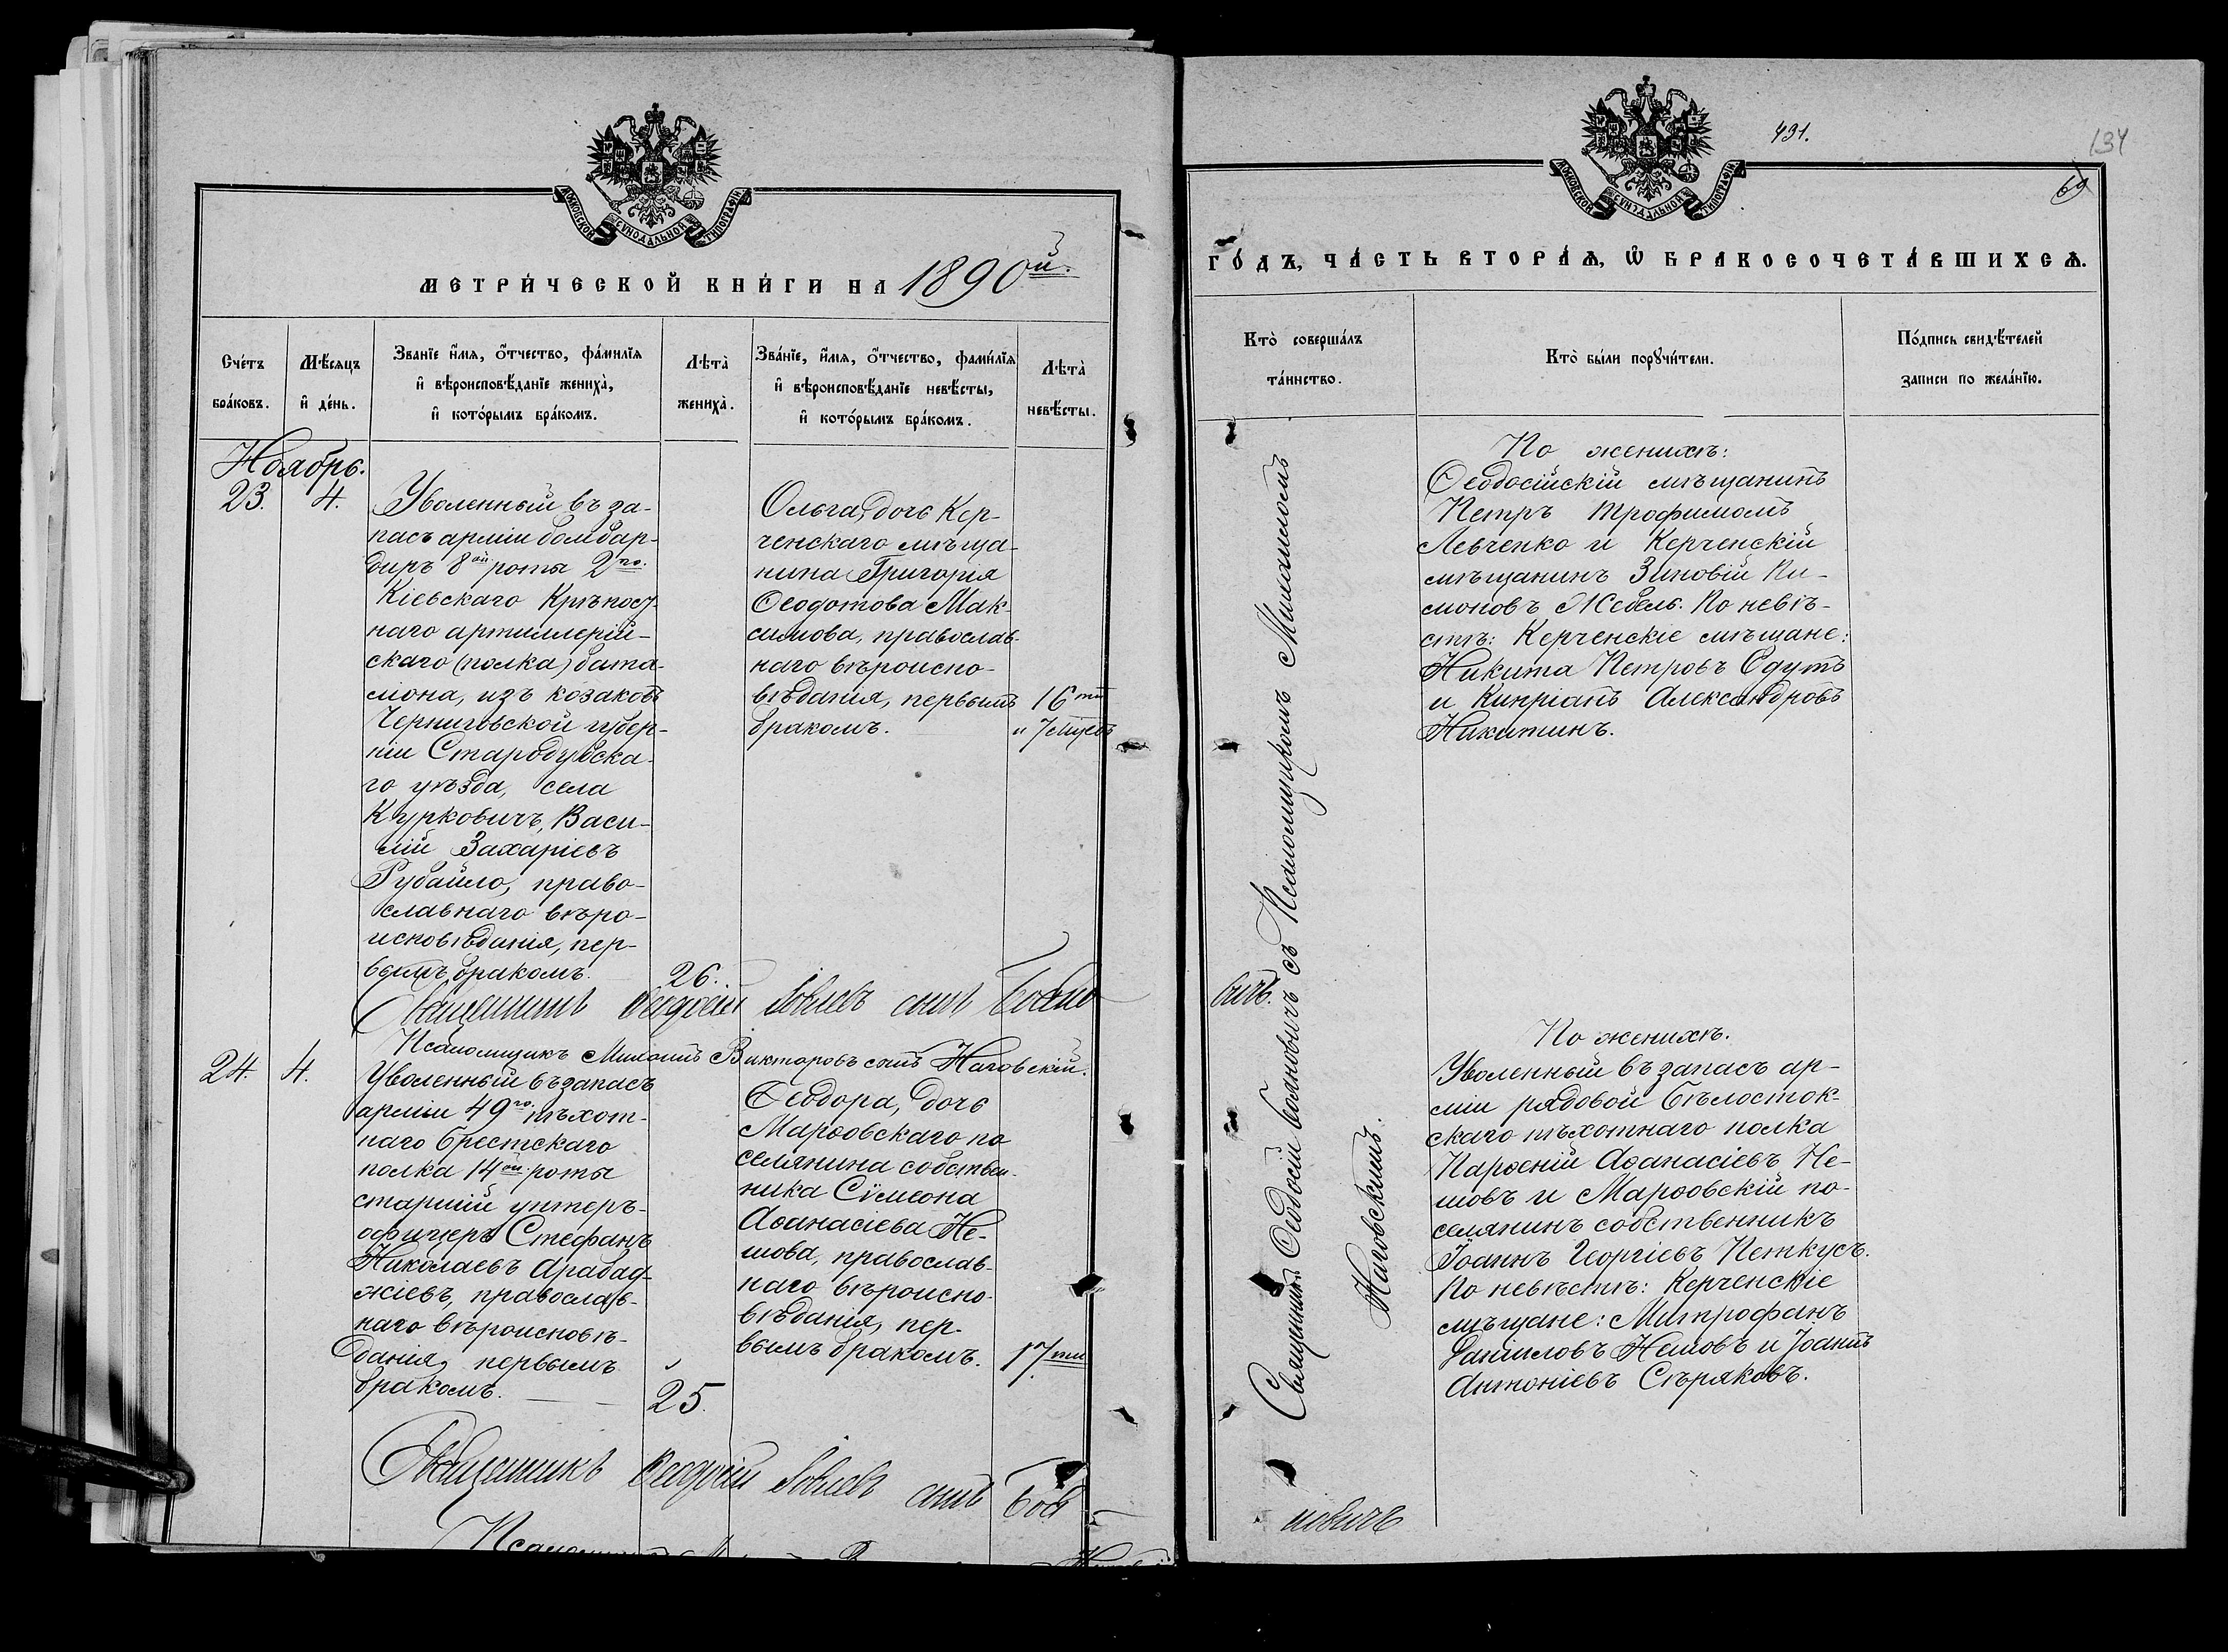 МОСКОВСКОЙ СѴНОДАЛЬНОЙ ТИПОГРАФІИ
МЕТРИ́ЧЕСКОЙ КНИ́ГИ НА 1890й.
Сче́тъ бра́ковъ.
Мѣ́сяцъ и҆ де́нь.
Зва́нїе и҆́мя, ѻ҆́тчество, фами́лїя
и҆ вѣроисповѣ́данїе жениха̀,
и҆ кото́рымъ бра́комъ.
Лѣта̀ жениха̀.
Зва́нїе, и҆́мя, ѻ҆́тчество, фами́лїя
и҆ вѣроисповѣ́данїе невѣ́сты,
и҆ кото́рымъ бра́комъ.
Лѣта̀ невѣ́сты.
Ноябрь.
23. 4.
Уволенный въ за-
пасъ арміи бомбар-
диръ 8ой роты 2го.
Кіевскаго Крѣпост-
наго артиллерій-
скаго (полка) бата-
ліона, изъ козаковъ
Черниговской губер-
ніи Стародубска-
го уѣзда, села
Курковичъ, Васи-
лій Захаріевъ
Рубайло, право-
славнаго вѣро-
исповѣданія, пер-
вымъ бракомъ.
26.
Ольга, дочь Кер-
ченскаго мѣща-
нина Григорія
Ѳеодотова Мак-
симова, православ-
наго вѣроиспо-
вѣданія, первымъ
бракомъ.
16ти
и 7 мѣсяцъ
Священникъ Ѳеодосій сынъ Бояно
Псаломщикъ Викторовъ сынъ Наговскій.
24. 4.
Уволенный въ запасъ
арміи 49го. пѣхот-
наго Брестскаго
полка 14ой роты
старшій унтеръ-
офицеръ Стефанъ
Николаевъ Арабад-
жіевъ, православ-
наго вѣроисповѣ-
данія, первымъ
бракомъ.
25.
Ѳеодора, дочь
Марѳовскаго по
селянина собствен-
ника Сѵмеона
Аѳанасіева Не-
шова, православ-
наго вѣроиспо-
вѣданія, пер-
вымъ бракомъ.
17ти
Священникъ Ѳеодосій сынъ Боя-
431.
134
69
МОСКОВСКОЙ СѴНОДАЛЬНОЙ ТИПОГРАФІИ
ГО́ДЪ, ЧА́СТЬ ВТОРА́Ѧ, Ѽ БРАКОСОЧЕТА́ВШИХСѦ.
Кто̀ соверша́лъ та́инство.
Кто̀ бы́ли порꙋчи́тели.
По́дпись свидѣ́телей записи по жела́нїю.
вичъ.
Священникъ Ѳеодосій Бояновичъ съ Псаломщикомъ
Наговскимъ.
По женихѣ:
Ѳеодосійскій мѣщанинъ
Петръ Трофимовъ
Левченко и Керченскій
мѣщанинъ Зиновій Пи-
моновъ Жебель. По невѣ-
стѣ: Керченскіе мѣщане:
Никита Петровъ Одутъ
и Кипріанъ Александровъ
Никитинъ.
По женихѣ.
Уволенный въ запасъ ар-
міи рядовой Бѣлосток-
скаго пѣхотнаго полка
Парѳеній Аѳанасіевъ Не-
шовъ и Марѳовскій по-
селянинъ собственникъ
Іоаннъ Георгіевъ Петкусъ.
По невѣстѣ: Керченскіе
мѣщане: Митрофанъ
Даніиловъ Нешовъ и Іоаннъ
Антоніевъ Сѣряковъ.
новичъ